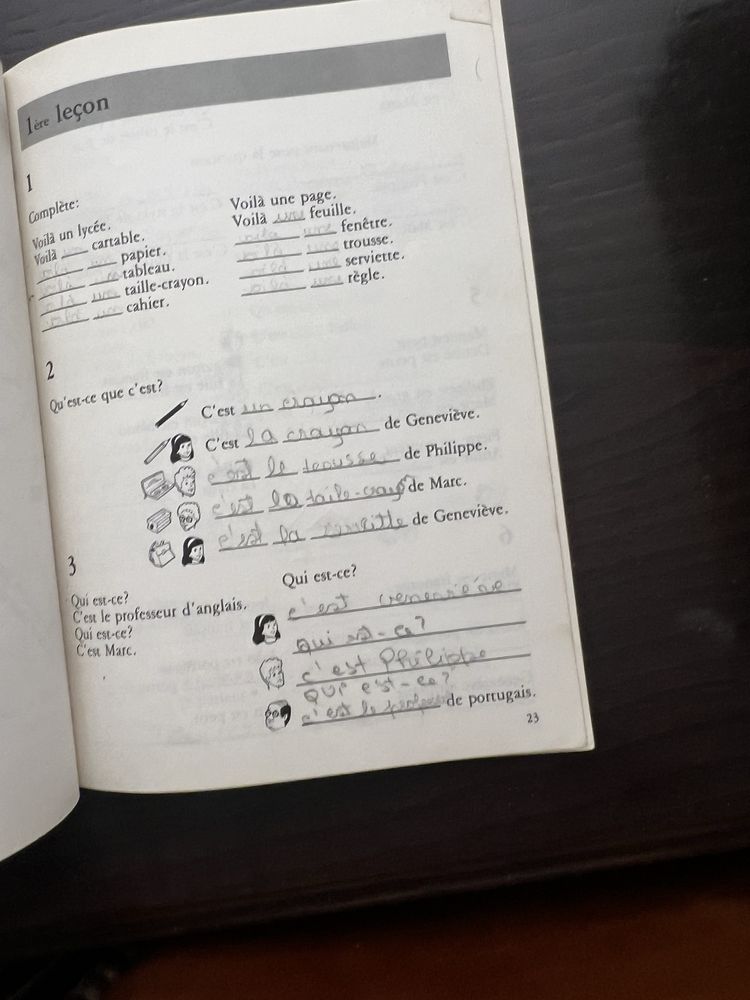 1ère leçon
1
Complète:
Voilà un lycée.
Voilà un cartable.
voilà un papier.
voilà un tableau.
voilà un taille-crayon.
voilà un cahier.
Voilà une page.
Voilà une feuille.
voilà une fenêtre.
voilà une trousse.
voilà une serviette.
voilà une règle.
2
Qu'est-ce que c'est?
C'est un crayon.
C'est la crayon de Geneviève.
c'est le trousse de Philippe.
c'est la taile-crayo de Marc.
c'est la de Geneviève.
3
Qui est-ce?
C'est le professeur d'anglais.
Qui est-ce?
C'est Marc.
Qui est-ce?
c'est
qui est-ce?
c'est Philippe
QUI est-ce?
c'est le de portugais.
23